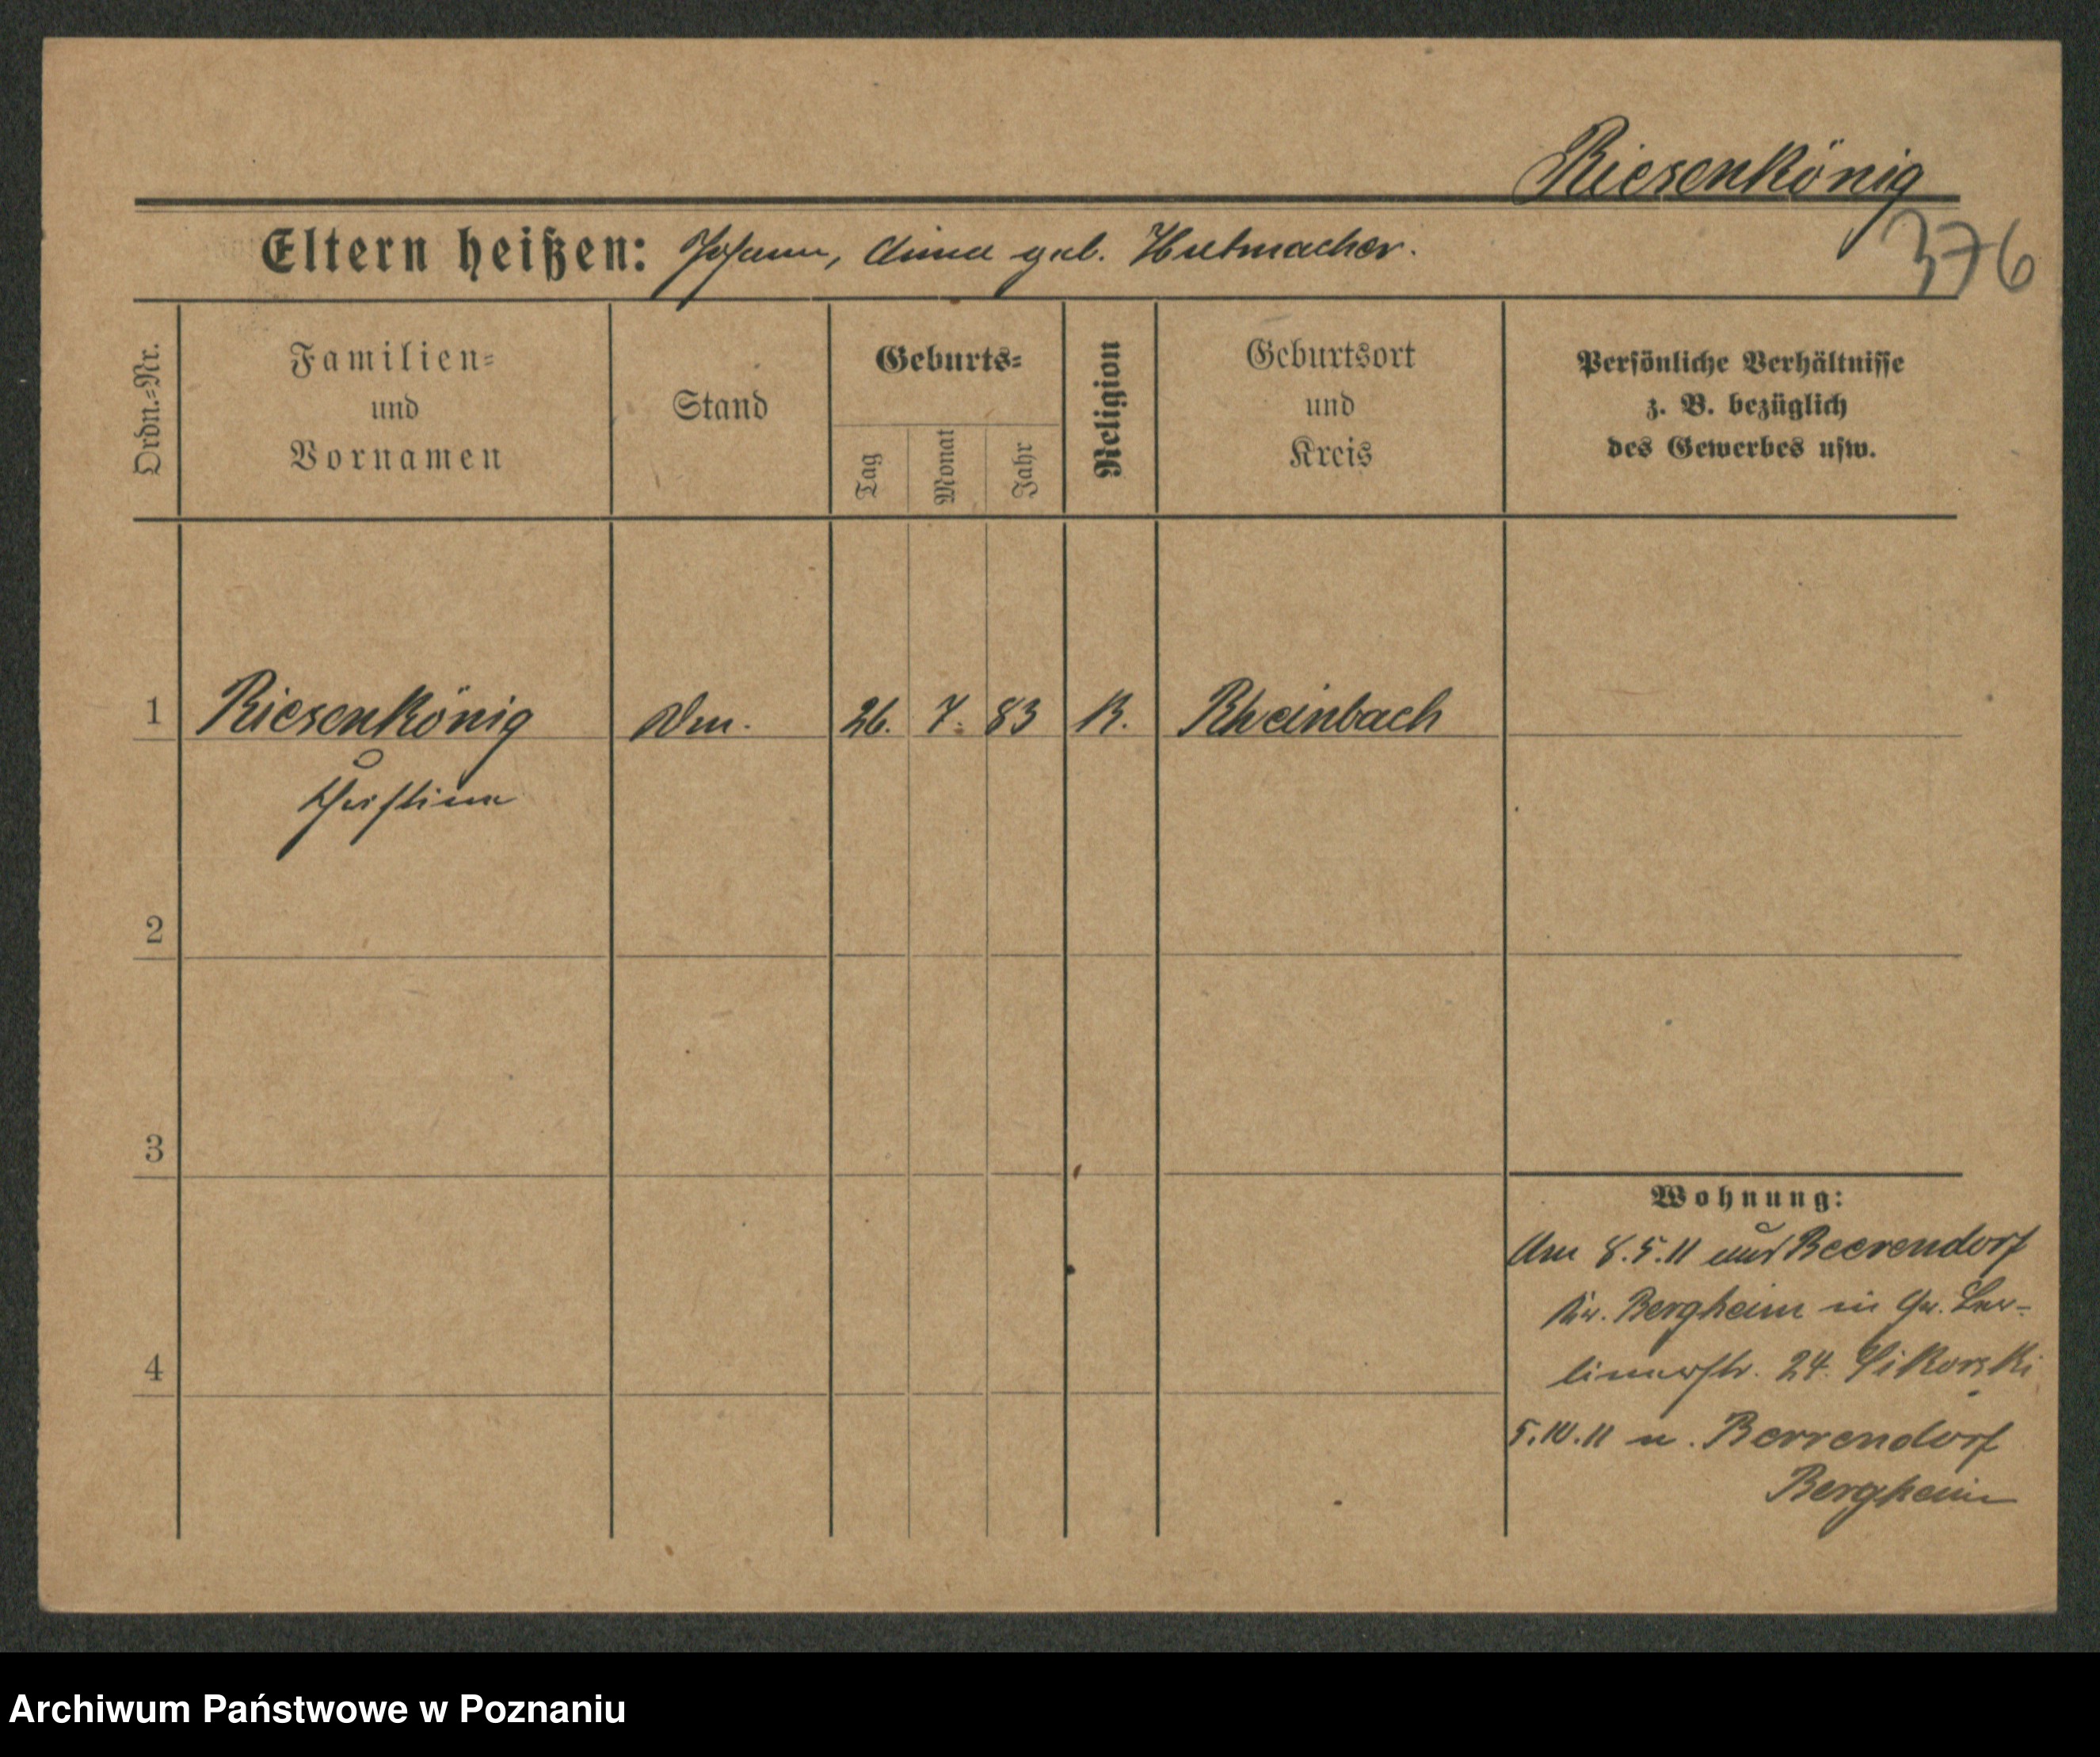 Riesenkönig
376
Eltern heißen: Johann, Anna geb. Hutmacher.
Ordn.-Nr.
Familien=
und
Vornamen
Stand
Geburts=
Tag
Monat
Jahr
Religion
Geburtsort
und
Kreis
Persönliche Verhältnisse
z. B. bezüglich
des Gewerbes usw.
1 Riesenkönig 26. 7. 83 K. Rheinbach
Christina
2
3
4
Wohnung:
Am 8.5.11 aus Beerendorf
Kr. Bergheim in Gr. Ber-
linerstr. 24. Sikorski
5.10.11 n. Berrendorf
Bergheim
Archiwum Państwowe w Poznaniu